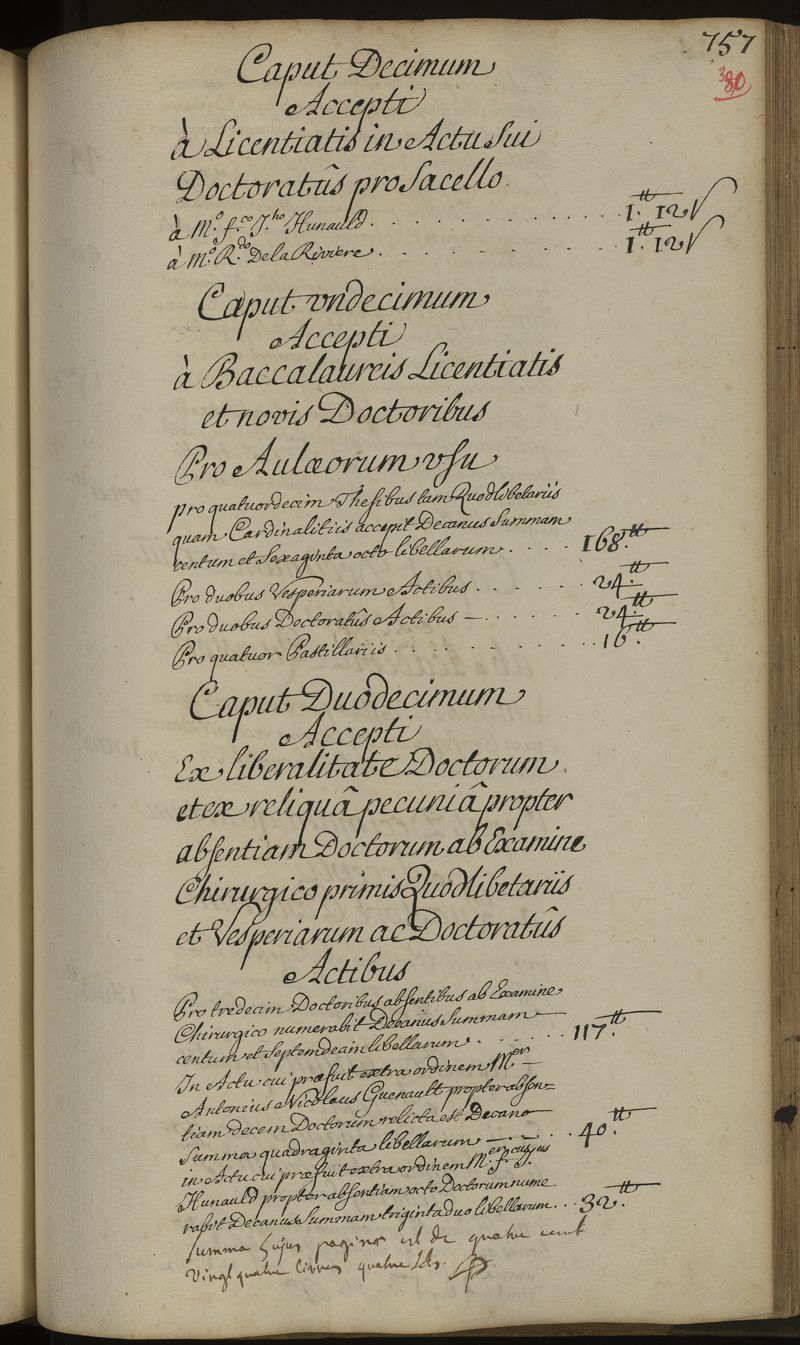 757
380
Caput Decimum
Accepti
à Licentiatis in Actu Sui
Doctoratûs pro Sacello.
à M.o f.co J.ho Hunauld . . . . . . . . 1.tt 12 ſ
à M.o R.do De la Riviere . . . . . . . . 1.tt 12 ſ
Caput vndecimum
Accepti
à Baccalaureis Licentiatis
et novis Doctoribus
Pro Aulæorum vsu
pro quatuordecim Thesibus tam Quodlibetariis
quam Cardinalitiis accepit Decanus Summam
centum et Sexaginta octo libellarum . . . . 168.tt
Pro duobus Vesperiarum Actibus . . . . . 24.tt
Pro duobus Doctoratûs Actibus — . . . . . 24.tt
Pro quatuor Pastillariis . . . . . . . . 16.tt
Caput Duodecimum
Accepti
Ex liberalitate Doctorum
et ex reliquâ pecuniâ propter
absentiam Doctorum ab Examine
Chirurgico primis Quodlibetariis
et Vesperiarum ac Doctoratûs
Actibus
Pro tredecim Doctoribus absentibus ab Examine
Chirurgico numerabit Decanus Summam
centum et Septemdecim libellarum . . . . . . 117.tt
In Actu cui præfuit extra ordinem M.er
Antonius Nicolaus Guenault propter absen=
tiam decem Doctorum relicta est Decano
Summa quadraginta libellarum — . — . . . 40.tt
in Actu cui præfuit extra ordinem M.er f.cus J.
Hunauld propter absentiam octo Doctorum nume
rabit Decanus Summam triginta duo libellarum . . . 32.tt
Summa hujus paginæ est de quatre cent
vingt quatre livres quatre sols.